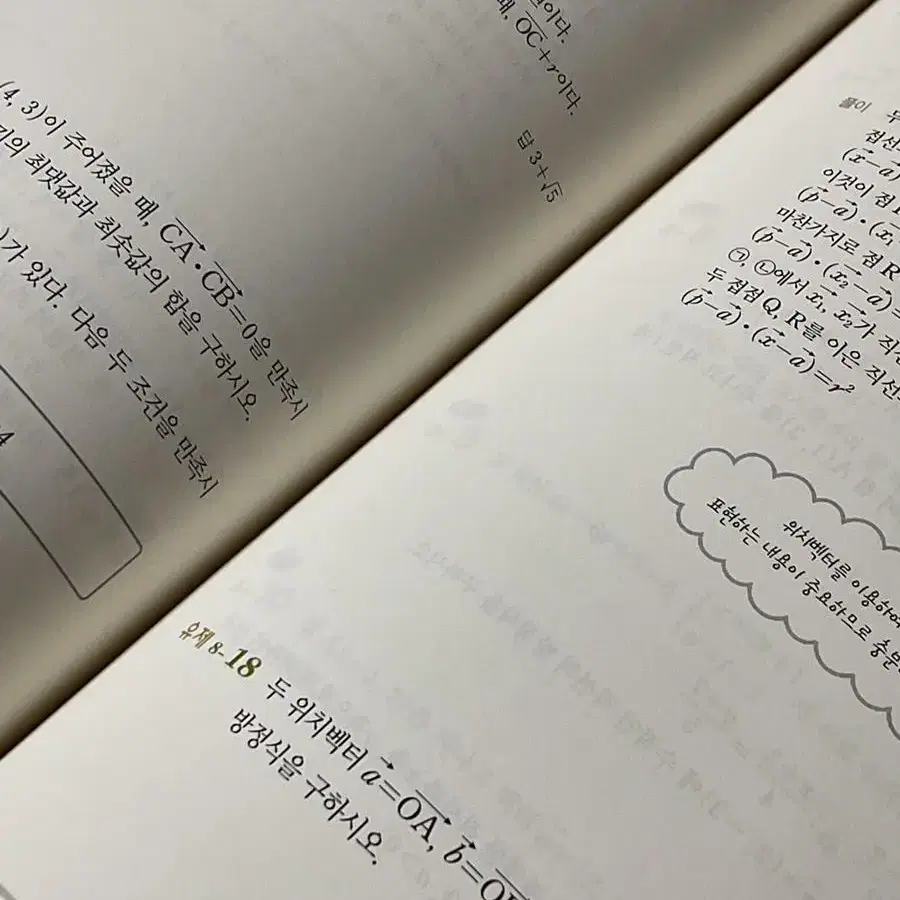 때, OC+r이다.
답 3+√5
(4, 3)이 주어졌을 때, CA·CB=0을 만족시
최댓값과 최솟값의 합을 구하시오.
가 있다. 다음 두 조건을 만족시
4
풀이 두
접선
(x-a)
이것이 점
(p-a)·(x₁
마찬가지로 점 R
(p-a)·(x₂-a)=
㉠, ㉡에서 x₁, x₂가 직선
두 접점 Q, R를 이은 직선
(p-a)·(x-a)=r²
위치벡터를 이용하여
표현하는 내용이 중요하므로 충분
유제 8-18 두 위치벡터 a=OA, b=
방정식을 구하시오.